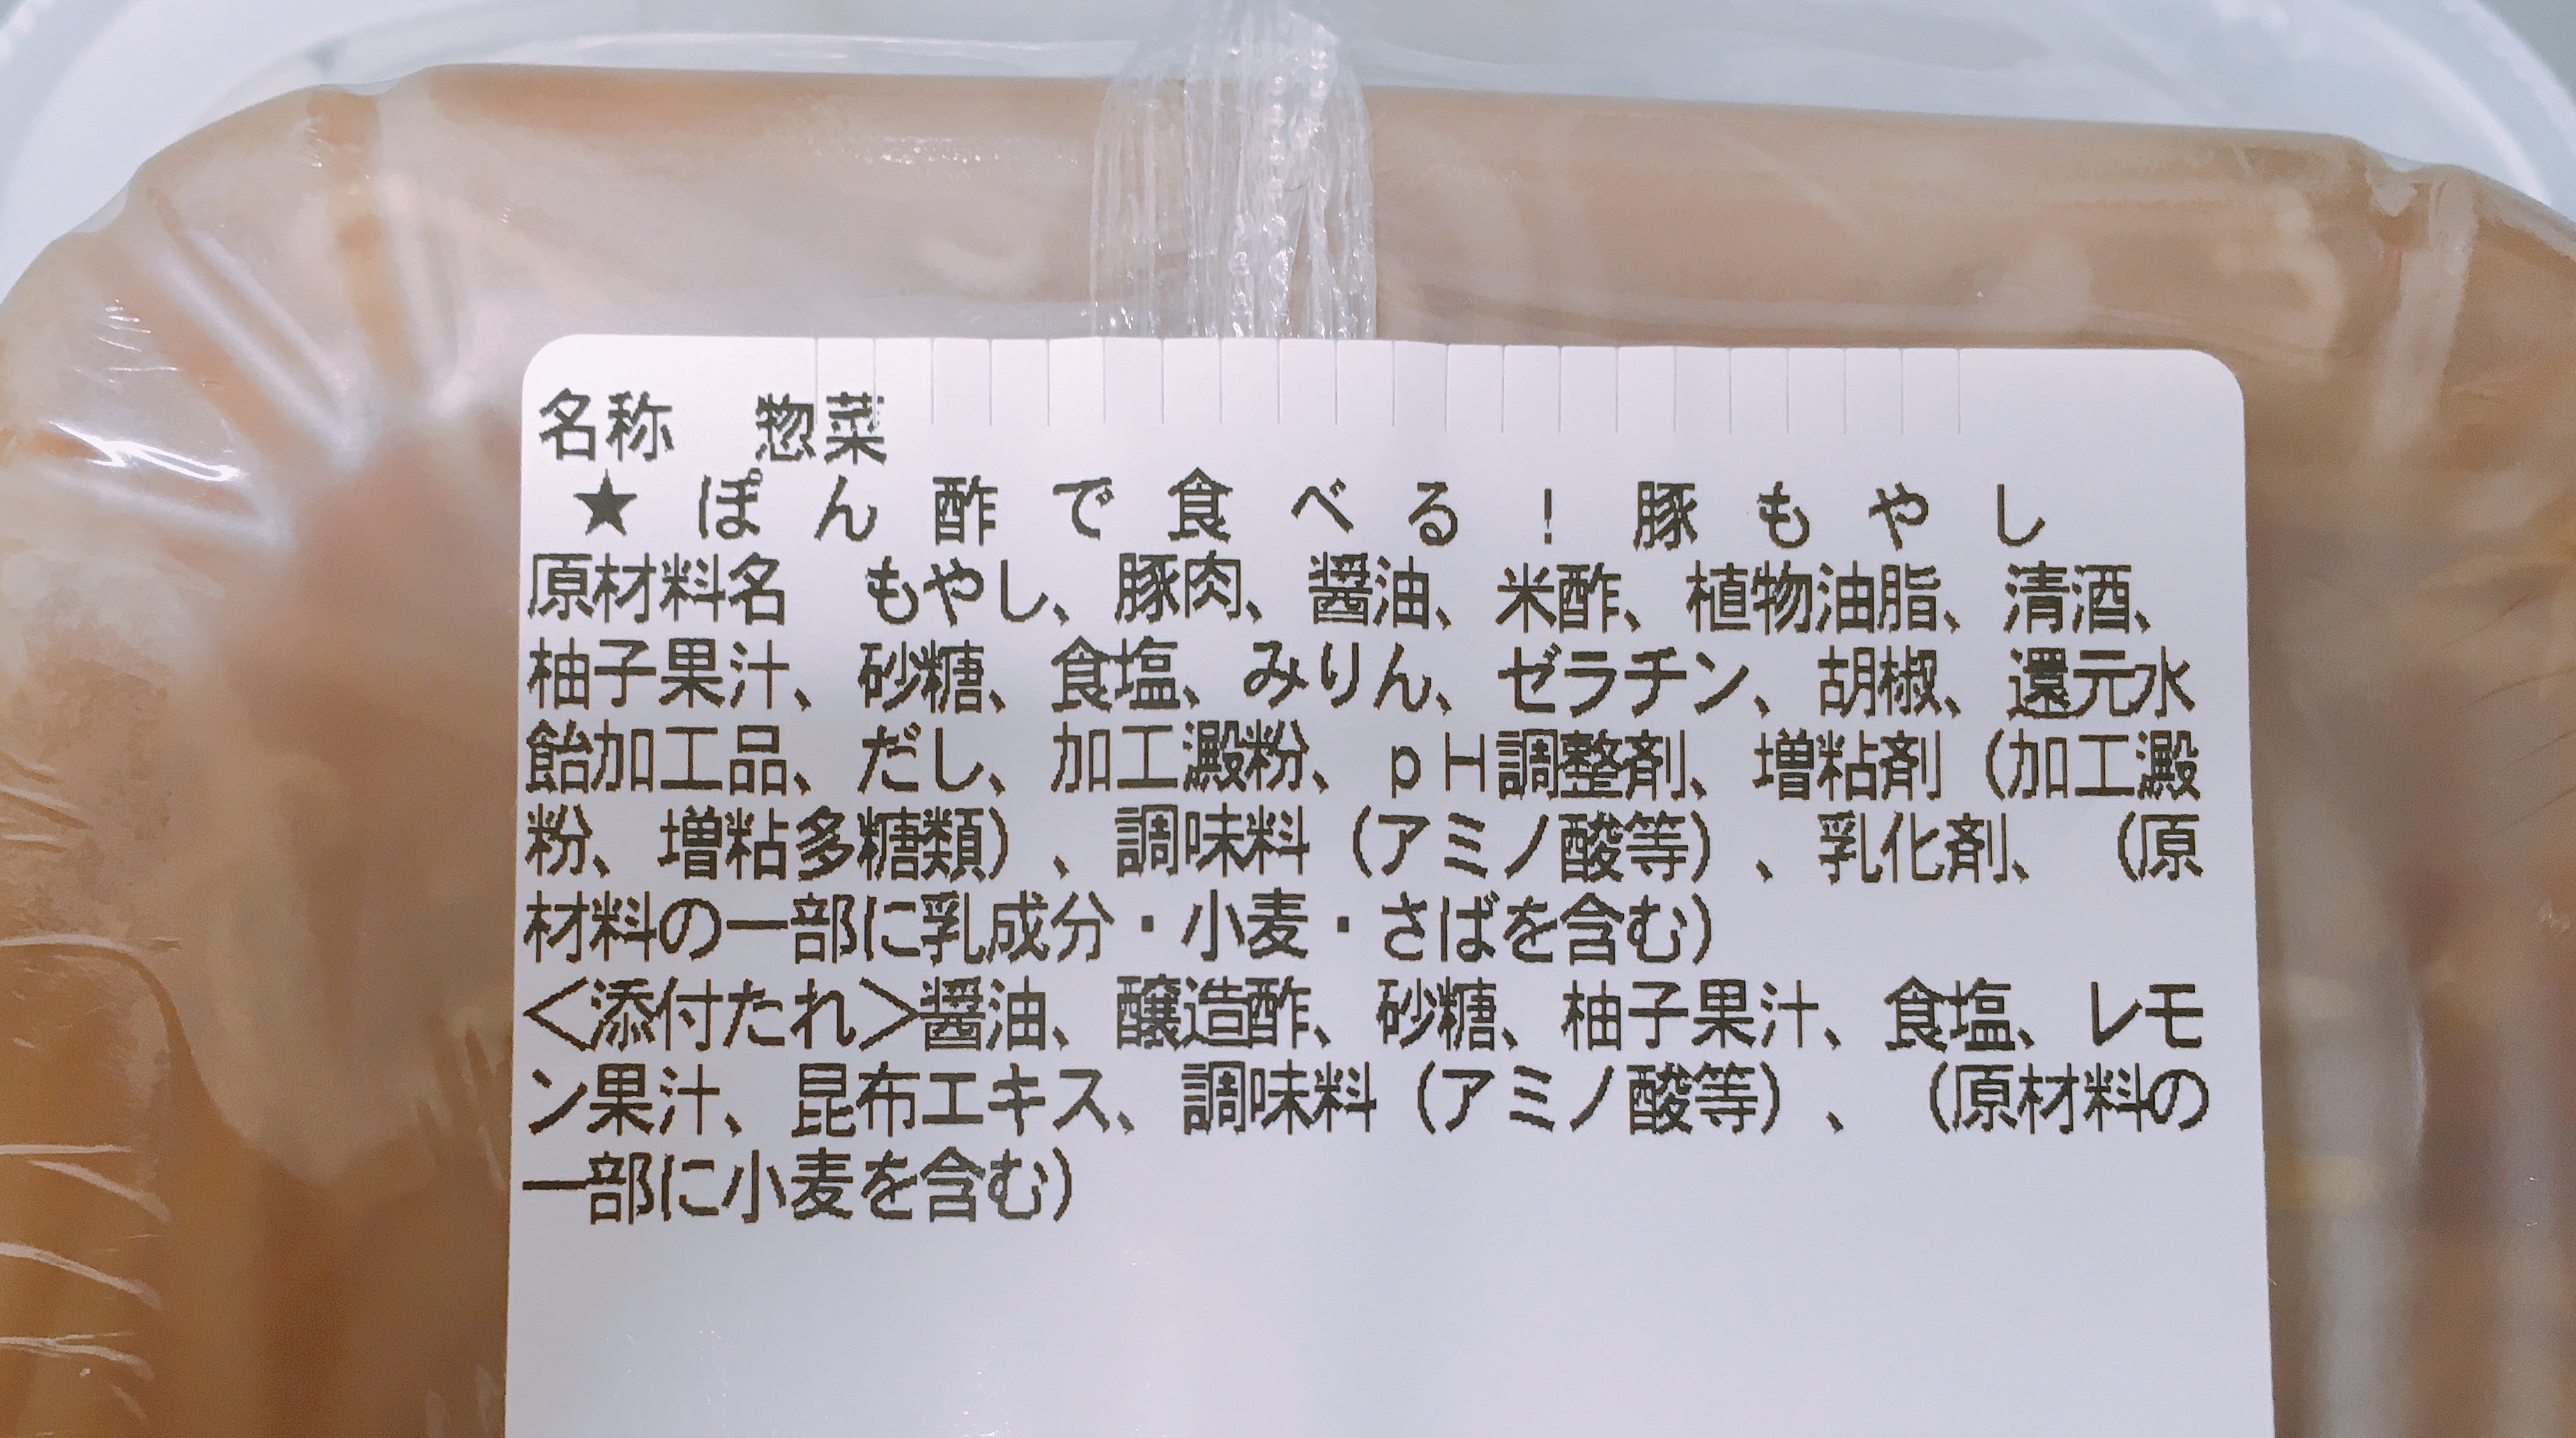 名称　惣菜
★ぽん酢で食べる！豚もやし
原材料名　もやし、豚肉、醤油、米酢、植物油脂、清酒、
柚子果汁、砂糖、食塩、みりん、ゼラチン、胡椒、還元水
飴加工品、だし、加工澱粉、ｐＨ調整剤、増粘剤（加工澱
粉、増粘多糖類）、調味料（アミノ酸等）、乳化剤、（原
材料の一部に乳成分・小麦・さばを含む）
＜添付たれ＞醤油、醸造酢、砂糖、柚子果汁、食塩、レモ
ン果汁、昆布エキス、調味料（アミノ酸等）、（原材料の
一部に小麦を含む）